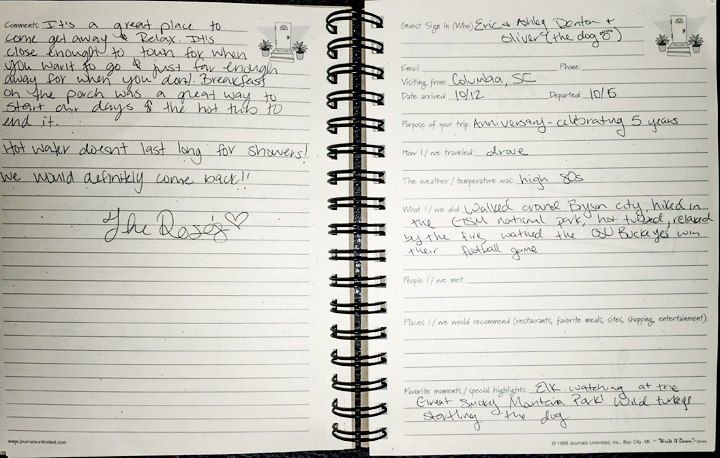 Comments: It's a great place to
come get away & Relax. It's
close enought to town for when
you want to go & just far enough
away for when you don't. Breakfast
on the porch was a great way to
start our days & the hot tub to
end it.
Hot water doesn't last long for showers!
We would definitely come back!!
The Rose's
www.journalsunlimited.com
Guest Sign In (Who) Eric & Ashley Denton +
Oliver (the dog)
Email: Phone:
Visiting from: Columbia, SC
Date arrived: 10/2 Departed: 10/5
Purpose of your trip: Anniversary - celebrating 5 years
How I / we traveled: drove
The weather / temperature was: high 80s
What I / we did: Walked around Bryson city, hiked in
the GSM national park, hot tubbed, relaxed
by the fire, watched the OSU Buckeyes win
their football game
People I / we met:
Places I / we would recommend (restaurants, favorite meals, sites, shopping, entertainment):
Favorite moments / special highlights: Elk watching at the
Great Smoky Mountain Park! Wild turkeys
startling the dog
© 1999 Journals Unlimited, Inc., Bay City, MI ~ "Write It Down!"